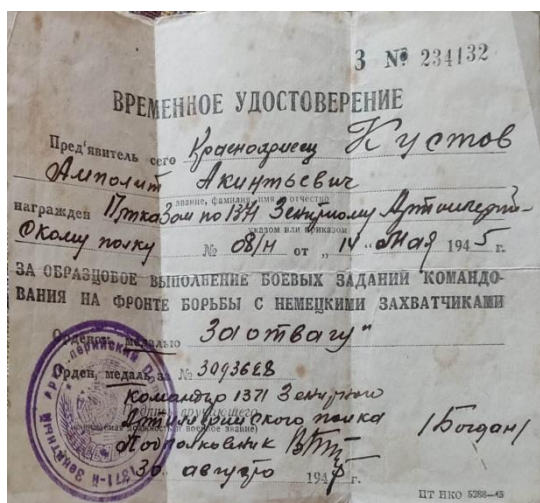 З № 234132
ВРЕМЕННОЕ УДОСТОВЕРЕНИЕ
Пред'явитель сего Красноармеец Кустов
Амполит Акинтьевич
звание, фамилия, имя и отчество
награжден Приказом по 1371 Зенитному Артиллерий-
скому полку
указом или приказом
№ 08/н от „14" Мая 1945 г.
ЗА ОБРАЗЦОВОЕ ВЫПОЛНЕНИЕ БОЕВЫХ ЗАДАНИЙ КОМАНДО-
ВАНИЯ НА ФРОНТЕ БОРЬБЫ С НЕМЕЦКИМИ ЗАХВАТЧИКАМИ
Орденом медалью За отвагу"
Орден, медаль за № 3093688
Командир 1371 Зенитного
Подпись вручающего
Артиллерийского полка /Богдан/
военное звание)
Подполковник
30 августа 194 г.
ПТ НКО 5288—45